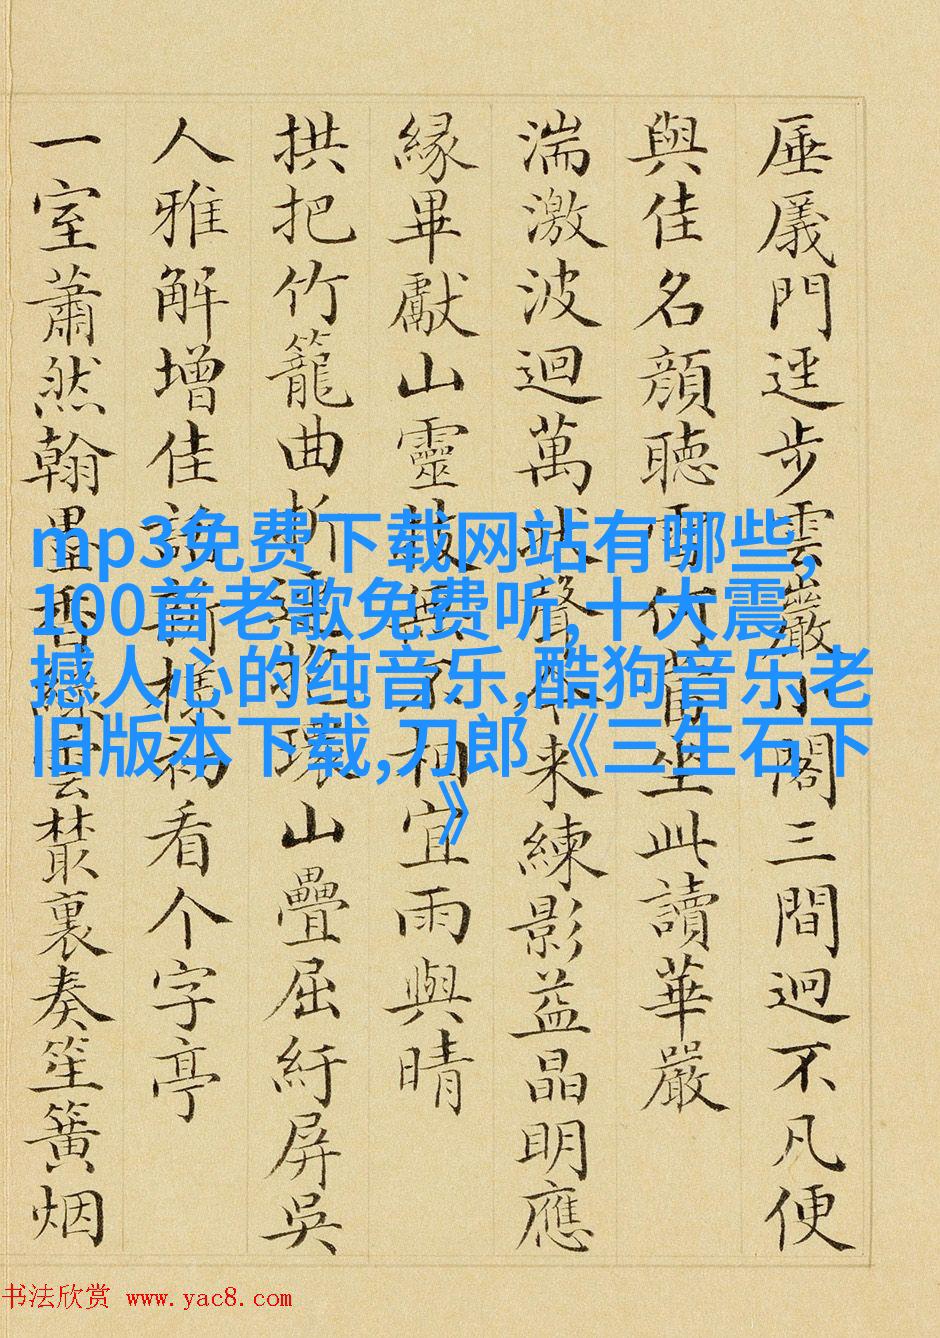 門逕步雲巖閣三間迥不凡便
與佳名顏聽雨何坐此讀華嚴
湍激波迴萬狀聲來練影益晶明應
緣畢獻山靈無不相宜雨與晴
拱把竹籠曲折環山疊屈紆屏吳
人雅解增佳話新樣初看个字亭
一室蕭然翰墨香雲叢裏奏笙簧烟
mp3免费下载网站有哪些,
100首老歌免费听,十大震
撼人心的纯音乐,酷狗音乐老
旧版本下载,刀郎《三生石下
》
书法欣赏 www.yac8.com